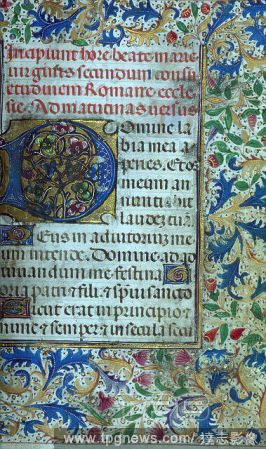 Incipiunt hore beate marie
uirginis secundum consu
etudinem Romane eccle
sie. Ad matutinas versus
Domine la
bia mea a
peries. Et os
meum an
nuntiabit
laudez tuā.
Deus in adiutoriuz me
um intende. Domine ad ad
iuuandum me festina
Gloria patri & fili. & spūi sancto
Sicut erat in principio &
nunc & semper & in secula secu
www.tpgnews.com / 達志影像